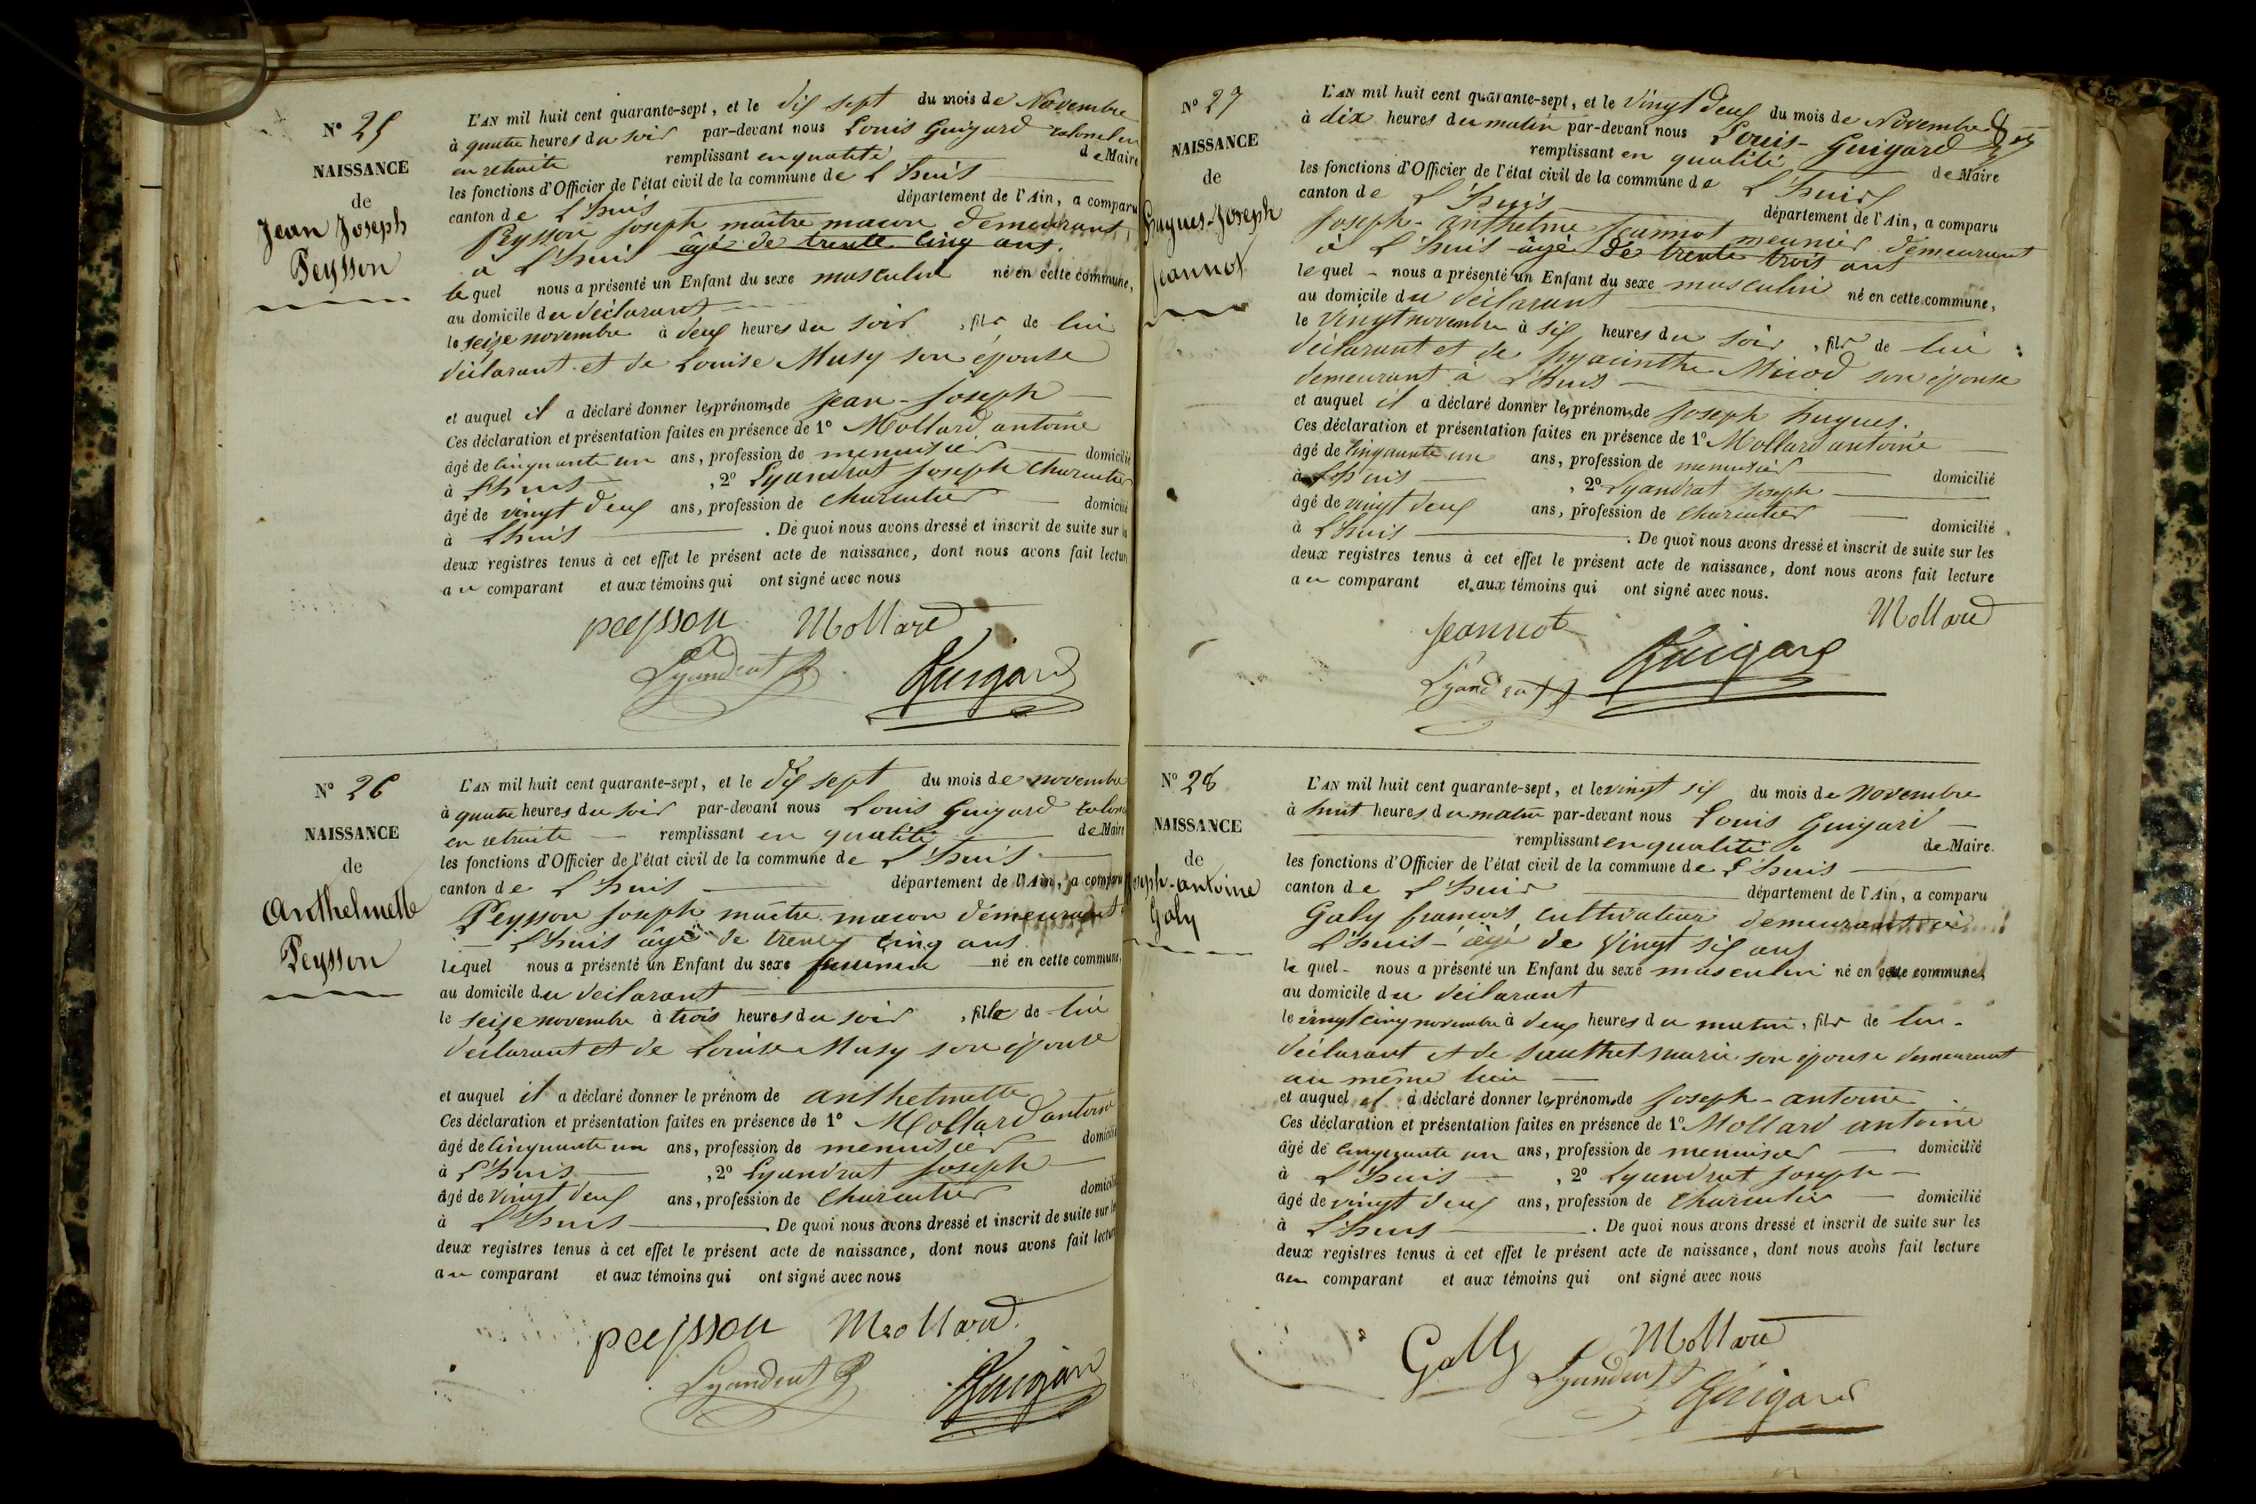 N° 25
NAISSANCE
de
Jean Joseph
Peysson
L'AN mil huit cent quarante-sept, et le dix sept du mois de Novembre
à quatre heures du soir par-devant nous Louis Guigard
en retraite remplissant en qualité de Maire
les fonctions d'Officier de l'état civil de la commune de L'huis
canton de L'huis département de l'Ain, a comparu
Peysson Joseph maître macon demeurant
à L'huis âgé de trente cinq ans.
lequel nous a présenté un Enfant du sexe masculin né en cette commune,
au domicile du déclarant
le seize novembre à deux heures du soir, fils de lui
déclarant et de Louise Musy son épouse
et auquel il a déclaré donner les prénoms de Jean-Joseph
Ces déclaration et présentation faites en présence de 1° Mollard antoine
âgé de cinquante un ans, profession de menuisier domicilié
à L'huis, 2° Lyandrat Joseph Charcutier
âgé de vingt deux ans, profession de charcutier domicilié
à L'huis. De quoi nous avons dressé et inscrit de suite sur les
deux registres tenus à cet effet le présent acte de naissance, dont nous avons fait lecture
au comparant et aux témoins qui ont signé avec nous
peysson Mollard
Lyandrat Guigard
N° 26
NAISSANCE
de
Anthelmette
Peysson
L'AN mil huit cent quarante-sept, et le dix sept du mois de novembre
à quatre heures du soir par-devant nous Louis Guigard
en retraite remplissant en qualité de Maire
les fonctions d'Officier de l'état civil de la commune de L'huis
canton de L'huis département de l'Ain, a comparu
Peysson Joseph maître macon demeurant à
L'huis âgé de trente cinq ans
lequel nous a présenté un Enfant du sexe feminin né en cette commune,
au domicile du déclarant
le seize novembre à trois heures du soir, fille de lui
déclarant et de Louise Musy son épouse
et auquel il a déclaré donner le prénom de anthelmette
Ces déclaration et présentation faites en présence de 1° Mollard antoine
âgé de cinquante un ans, profession de menuisier domicilié
à L'huis, 2° Lyandrat Joseph
âgé de vingt deux ans, profession de charcutier domicilié
à L'huis. De quoi nous avons dressé et inscrit de suite sur les
deux registres tenus à cet effet le présent acte de naissance, dont nous avons fait lecture
au comparant et aux témoins qui ont signé avec nous
peysson Mollard
Lyandrat Guigard
N° 27
NAISSANCE
de
Hugues-Joseph
Jeannot
L'AN mil huit cent quarante-sept, et le vingt deux du mois de Novembre
à dix heures du matin par-devant nous Louis Guigard
remplissant en qualité de Maire
les fonctions d'Officier de l'état civil de la commune de L'huis
canton de L'huis département de l'Ain, a comparu
Joseph-anthelme Jeannot meunier demeurant
à L'huis âgé de trente trois ans
lequel nous a présenté un Enfant du sexe masculin né en cette commune,
au domicile du déclarant
le vingt novembre à six heures du soir, fils de lui
déclarant et de hyacinthe Micod son épouse
demeurant à L'huis
et auquel il a déclaré donner les prénoms de Joseph hugues.
Ces déclaration et présentation faites en présence de 1° Mollard antoine
âgé de cinquante un ans, profession de menuisier
à L'huis, 2° Lyandrat Joseph domicilié
âgé de vingt deux ans, profession de charcutier
à L'huis domicilié. De quoi nous avons dressé et inscrit de suite sur les
deux registres tenus à cet effet le présent acte de naissance, dont nous avons fait lecture
au comparant et aux témoins qui ont signé avec nous.
Jeannot Mollard
Lyandrat Guigard
N° 28
NAISSANCE
de
Joseph-antoine
Galy
L'AN mil huit cent quarante-sept, et le vingt six du mois de Novembre
à huit heures du matin par-devant nous Louis Guigard
remplissant en qualité de Maire.
les fonctions d'Officier de l'état civil de la commune de L'huis
canton de L'huis département de l'Ain, a comparu
Galy francois cultivateur demeurant à
L'huis âgé de vingt six ans
lequel nous a présenté un Enfant du sexe masculin né en cette commune,
au domicile du déclarant
le vingt cinq novembre à deux heures du matin, fils de lui
déclarant et de marie son épouse demeurant
au même lieu
et auquel il a déclaré donner les prénoms de Joseph-antoine
Ces déclaration et présentation faites en présence de 1° Mollard antoine
âgé de cinquante un ans, profession de menuisier domicilié
à L'huis, 2° Lyandrat Joseph
âgé de vingt deux ans, profession de charcutier domicilié
à L'huis. De quoi nous avons dressé et inscrit de suite sur les
deux registres tenus à cet effet le présent acte de naissance, dont nous avons fait lecture
au comparant et aux témoins qui ont signé avec nous
Gally Mollard
Lyandrat Guigard